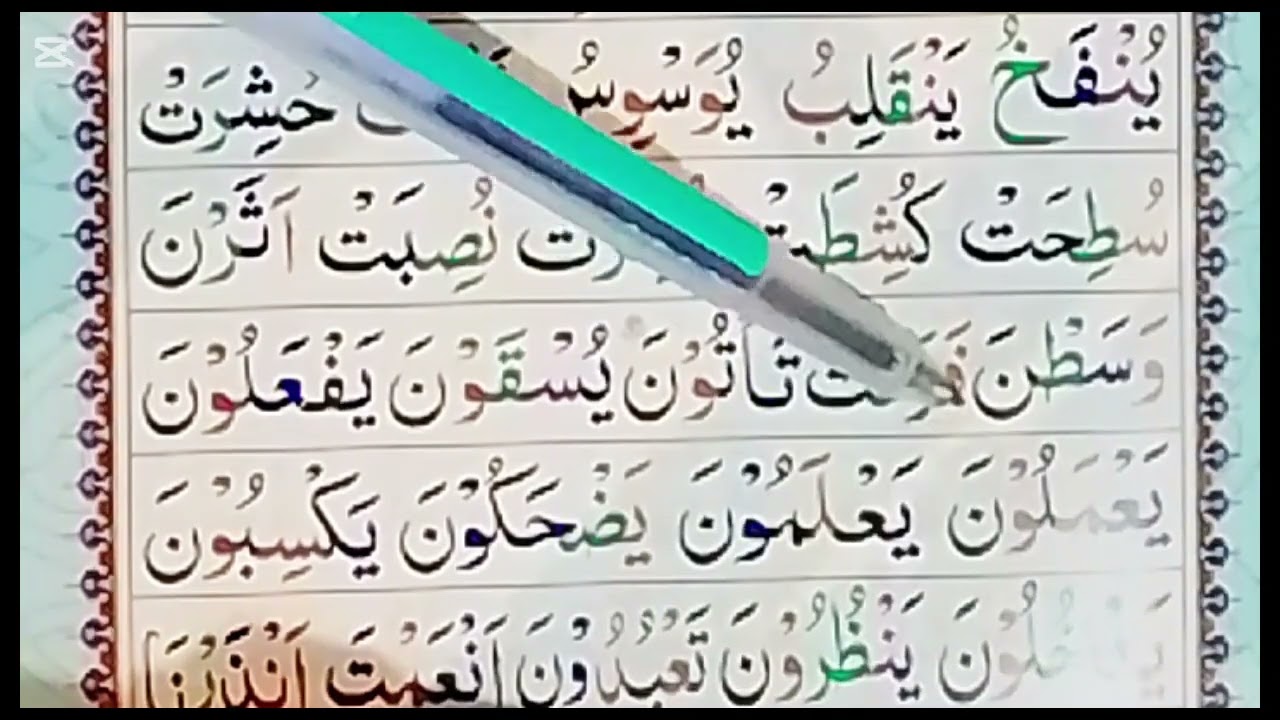 يُنْفَخُ يَنْقَلِبُ يُوَسْوِسُ حُشِرَتْ
سُطِحَتْ كُشِطَتْ نُصِبَتْ اَثَرْنَ
وَسَطْنَ تَاْتُوْنَ يُسْقَوْنَ يَفْعَلُوْنَ
يَعْمَلُوْنَ يَعْلَمُوْنَ يَضْحَكُوْنَ يَكْسِبُوْنَ
يَنْظُرُوْنَ تَعْبُدُوْنَ اَنْعَمْتَ اَنْذَرْنَا